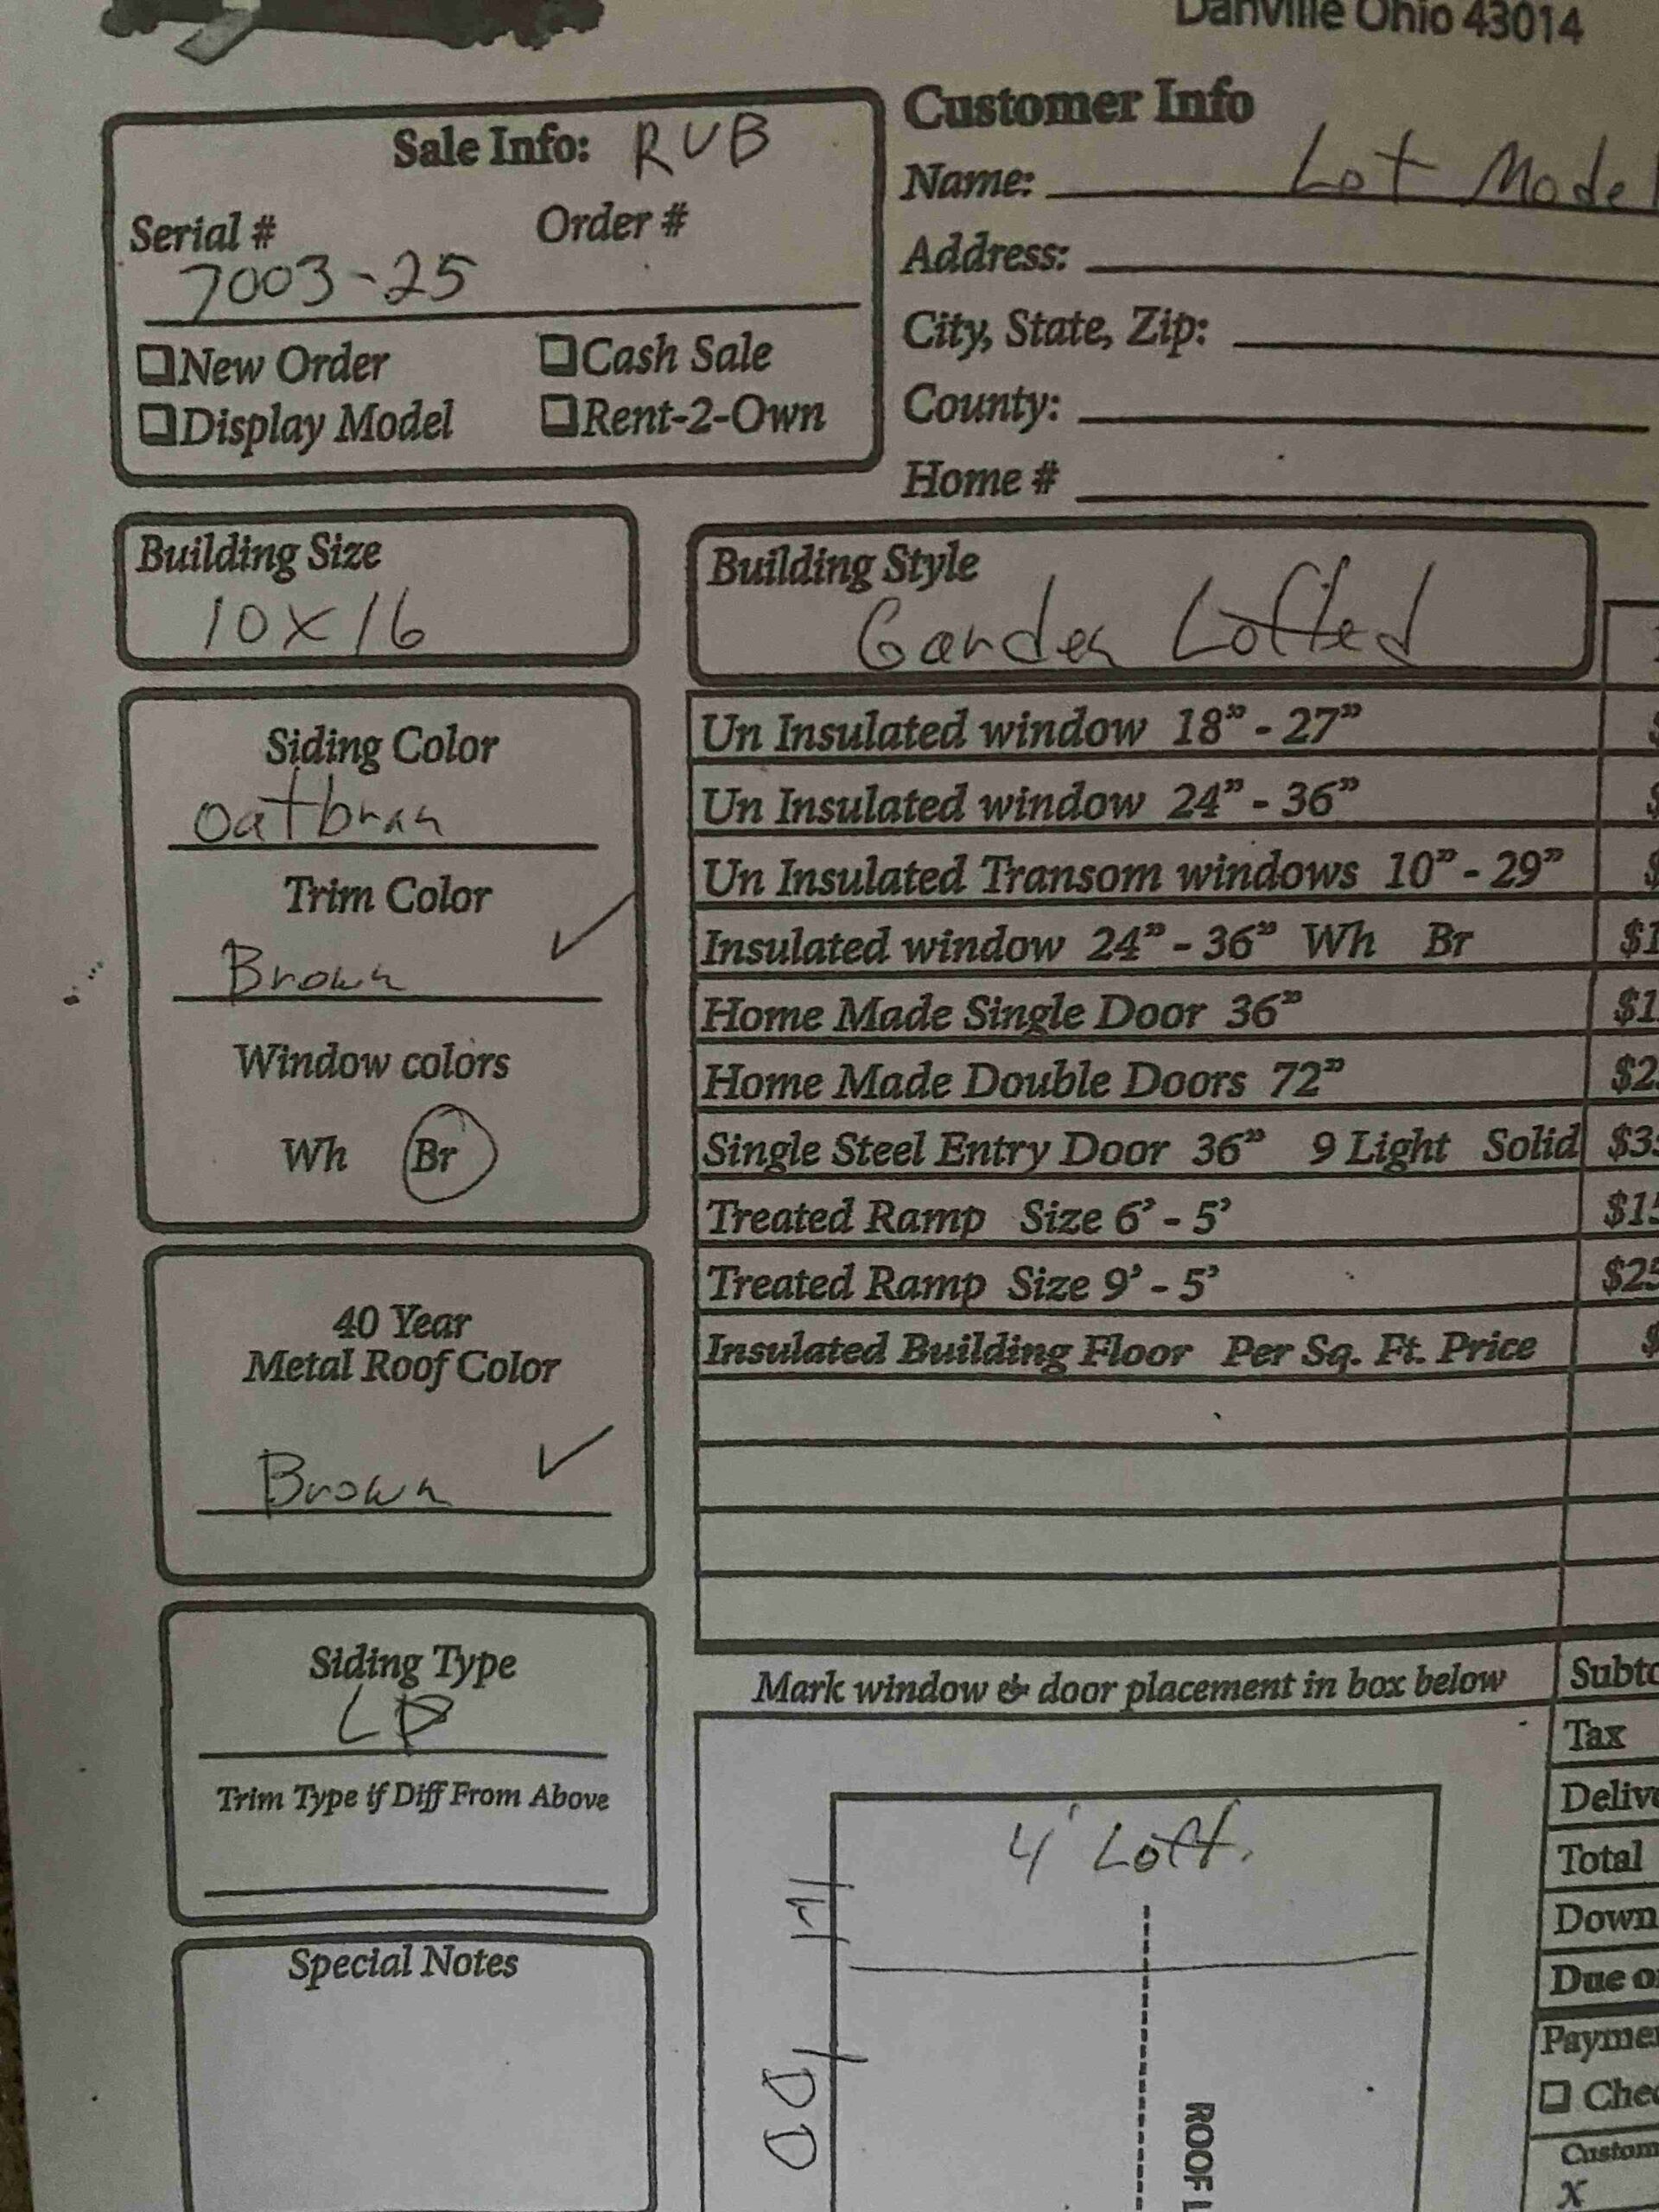 Danville Ohio 43014
Sale Info: RUB
Serial # Order #
7003-25
❑New Order ❑Cash Sale
❑Display Model ❑Rent-2-Own
Customer Info
Name: Lot Model
Address:
City, State, Zip:
County:
Home #
Building Size
10x16
Building Style
Garden Lofted
Siding Color
Oatbran
Trim Color
Brown ✓
Window colors
Wh Br
40 Year
Metal Roof Color
Brown ✓
Siding Type
LP
Trim Type if Diff From Above
Special Notes
Un Insulated window 18” - 27”
Un Insulated window 24” - 36”
Un Insulated Transom windows 10” - 29”
Insulated window 24” - 36” Wh Br $1
Home Made Single Door 36” $1
Home Made Double Doors 72” $2
Single Steel Entry Door 36” 9 Light Solid $3
Treated Ramp Size 6’ - 5’ $15
Treated Ramp Size 9’ - 5’ $25
Insulated Building Floor Per Sq. Ft. Price $
Mark window & door placement in box below
4' Loft.
DD
ROOF L
Subto
Tax
Delive
Total
Down
Due o
Paymen
❑ Chec
Custom
X